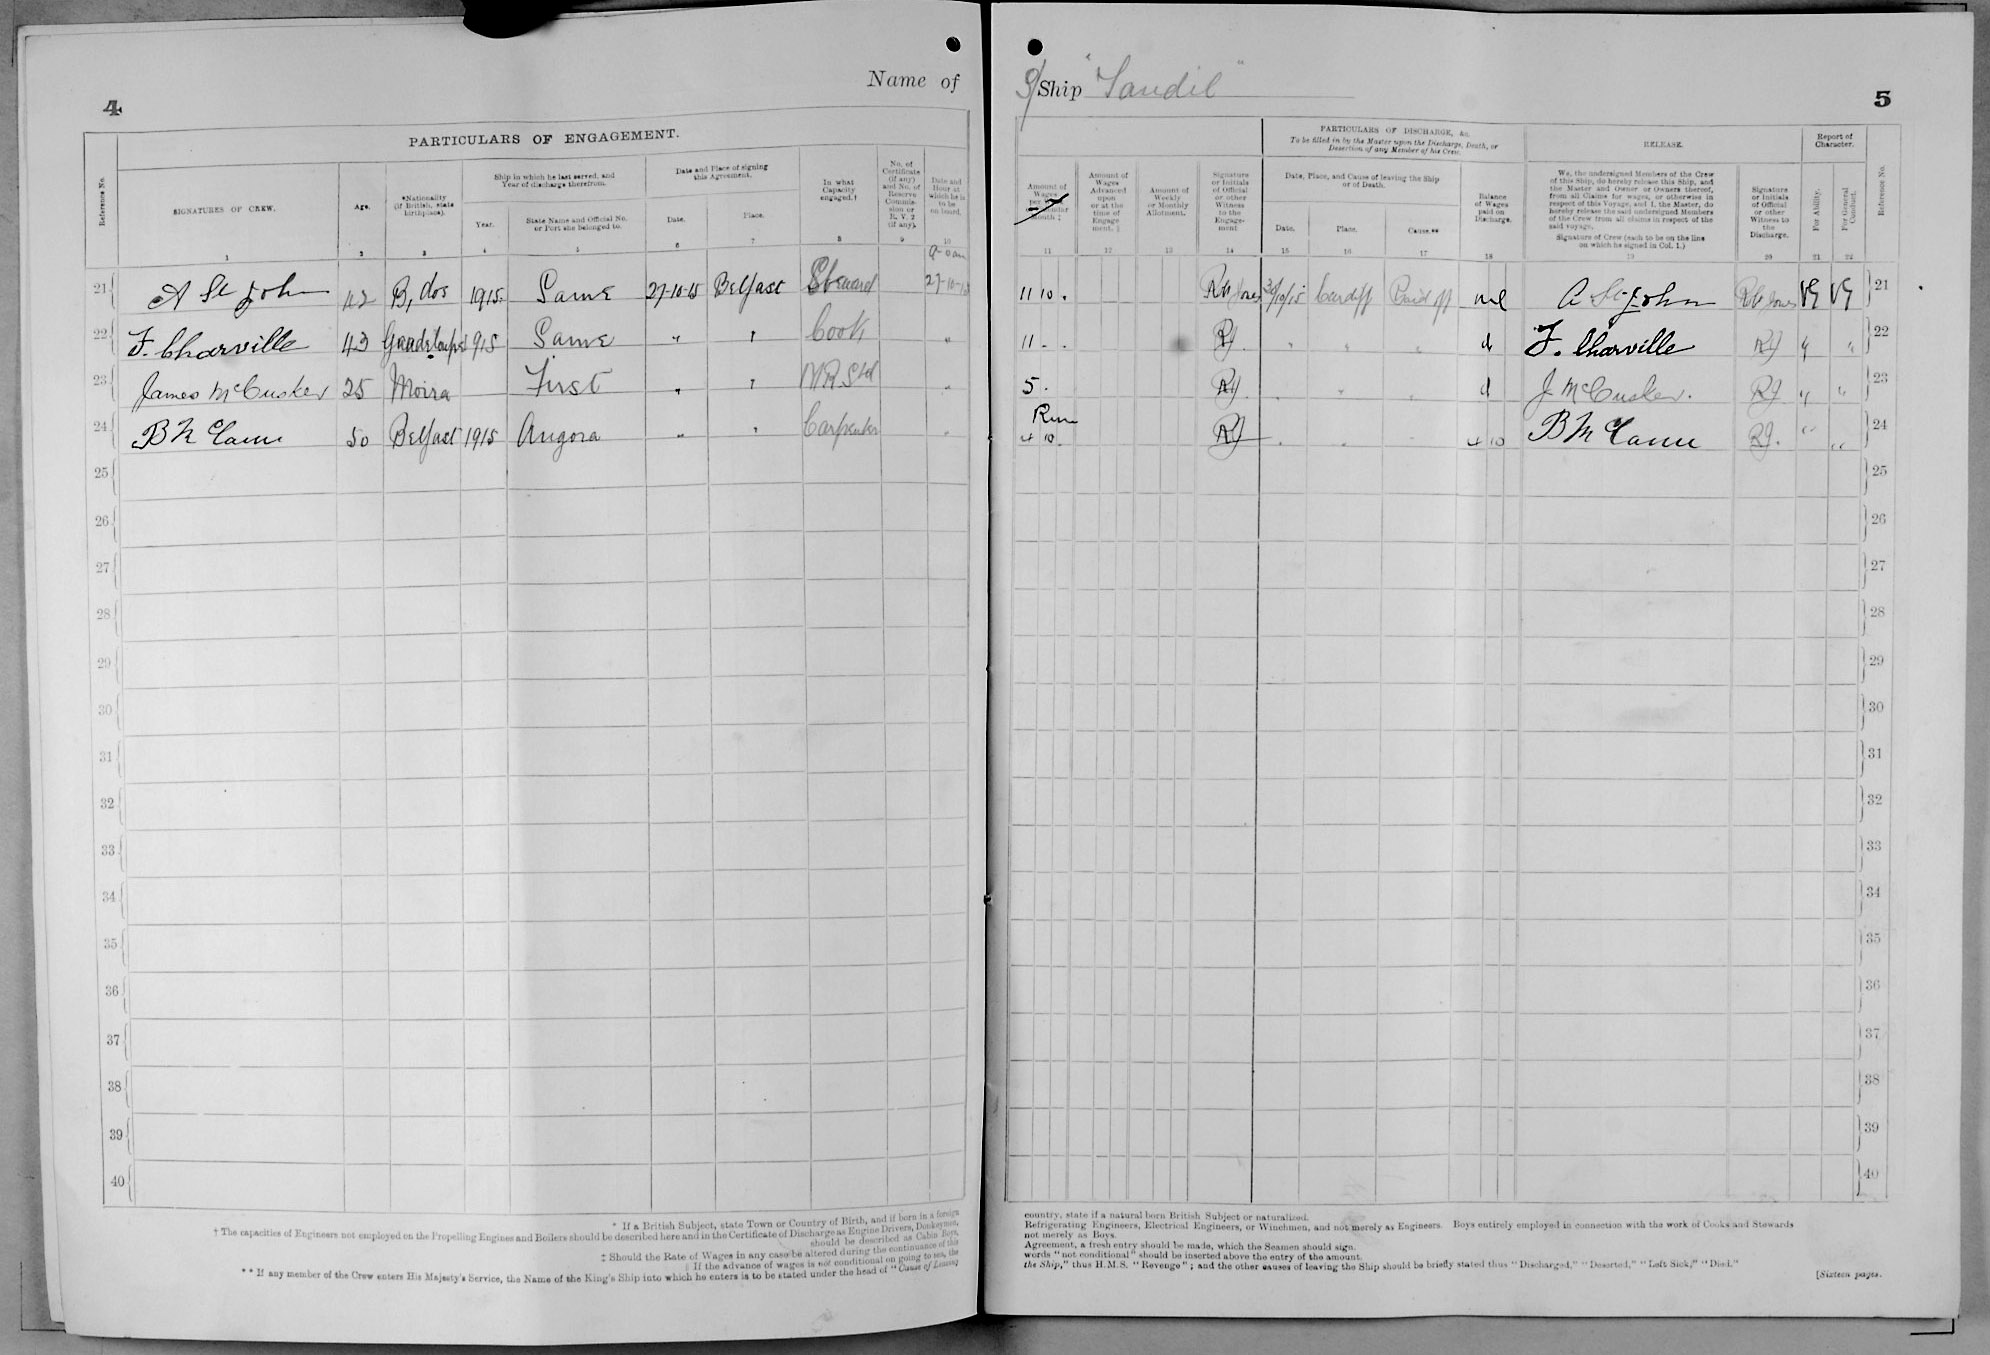 4
Name of
S/Ship "Sandil"
5
PARTICULARS OF ENGAGEMENT.
Reference No.
SIGNATURES OF CREW.
Age.
*Nationality
(if British, state
birthplace).
Ship in which he last served, and
Year of discharge therefrom.
Year.
State Name and Official No.
or Port she belonged to.
Date and Place of signing
this Agreement.
Date.
Place.
In what
Capacity
engaged.†
No. of
Certificate
(if any)
and No. of
Reserve
Commis-
sion or
R.V. 2
(if any).
Date and
Hour at
which he is
to be
on board.
1 2 3 4 5 6 7 8 9 10
21 A St John 42 B,dos 1915 Same 27-10-15 Belfast Steward 27-10-15
22 F. Charville 43 Guadeloupe 1915 Same " " Cook "
23 James McCusker 25 Moira First " " "
24 B McCann 50 Belfast 1915 Angora " " Carpenter "
25
26
27
28
29
30
31
32
33
34
35
36
37
38
39
40
* If a British Subject, state Town or Country of Birth, and if born in a foreign
† The capacities of Engineers not employed on the Propelling Engines and Boilers should be described here and in the Certificate of Discharge as Engine Drivers, Donkeymen,
should be described as Cabin Boys,
‡ Should the Rate of Wages in any case be altered during the continuance of this
§ If the advance of wages is not conditional on going to sea, the
** If any member of the Crew enters His Majesty's Service, the Name of the King's Ship into which he enters is to be stated under the head of "Cause of Leaving
PARTICULARS OF DISCHARGE, &c.
To be filled in by the Master upon the Discharge, Death, or
Desertion of any Member of his Crew.
RELEASE.
Report of
Character.
Amount of
Wages
per
Calendar
Month.‡
Amount of
Wages
Advanced
upon
or at the
time of
Engage
ment.§
Amount of
Weekly
or Monthly
Allotment.
Signature
or Initials
of Official
or other
Witness
to the
Engage-
ment
Date, Place, and Cause of leaving the Ship
or of Death.
Date.
Place.
Cause.**
Balance
of Wages
paid on
Discharge.
We, the undersigned Members of the Crew
of this Ship, do hereby release this Ship, and
the Master and Owner or Owners thereof,
from all Claims for wages, or otherwise in
respect of this Voyage, and I, the Master, do
hereby release the said undersigned Members
of the Crew from all claims in respect of the
said voyage.
Signature of Crew (each to be on the line
on which he signed in Col. 1.)
Signature
or Initials
of Official
or other
Witness to
the
Discharge.
For Ability.
For General
Conduct.
Reference No.
11 12 13 14 15 16 17 18 19 20 21 22
11 10 . 30/10/15 Cardiff Paid off nil A St John VG VG 21
11 - - RJ " " " F. Charville RJ " " 22
5 . RJ " " " J McCusker. RJ " " 23
Run
4 10 RJ " " " 4 10 B McCann RJ. " " 24
25
26
27
28
29
30
31
32
33
34
35
36
37
38
39
40
country, state if a natural born British Subject or naturalized.
Refrigerating Engineers, Electrical Engineers, or Winchmen, and not merely as Engineers. Boys entirely employed in connection with the work of Cooks and Stewards
not merely as Boys.
Agreement, a fresh entry should be made, which the Seamen should sign.
words "not conditional" should be inserted above the entry of the amount.
the Ship," thus H.M.S. "Revenge"; and the other causes of leaving the Ship should be briefly stated thus "Discharged," "Deserted," "Left Sick," "Died."
[Sixteen pages.